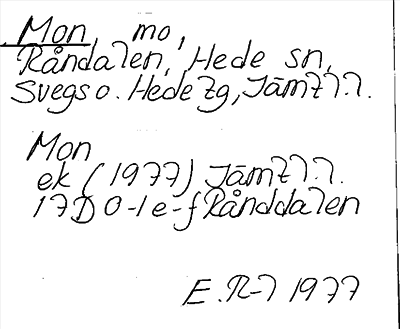 Mon, mo,
Råndalen, Hede sn,
Svegs o. Hede tg, Jämtl.l.
Mon
ek (1977) Jämtl.l.
17D 0-1 e-f Rånddalen
E.R-l 1977